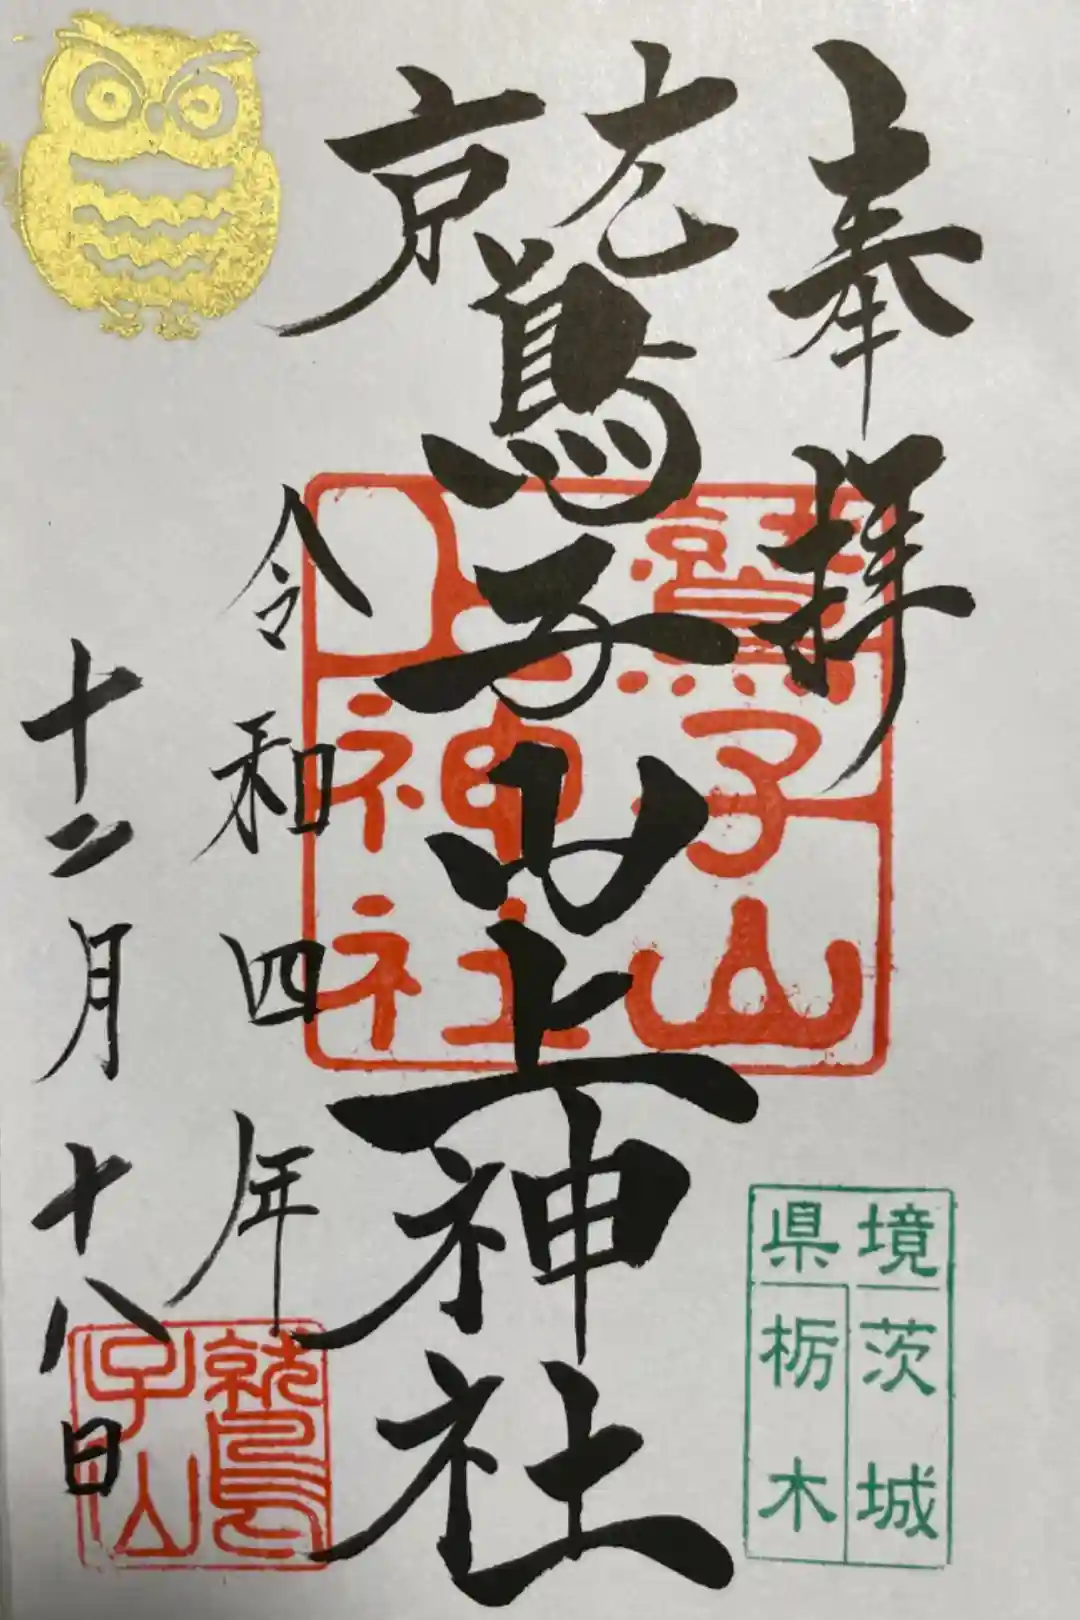 奉拝
鷲子山上神社
令和四年
十二月十八日
鷲子山
上神社
鷲子山
県境
茨城
栃木